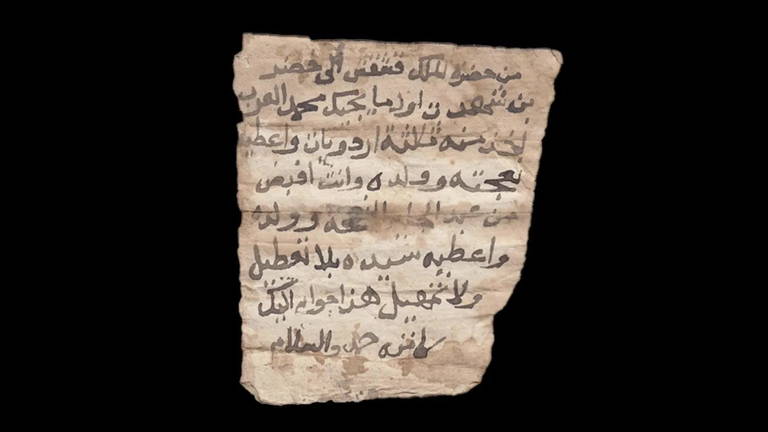 من حضره الملك قشقش الى خضر
بن اول ما يجيك محمد العرب
منه ثلاثة اردويات واعطيه
نعجته وولده وانت اقبض
من عبد وولده
واعطيه سيده بلا تعطيل
ولا تمهيل هذا جوابي اليك
حمد والسلام